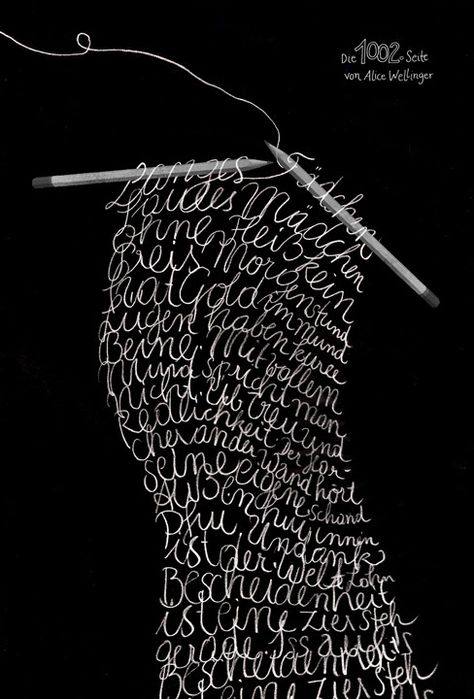 Die 1002. Seite
von Alice Wellinger
Langes Fädchen
faules Mädchen
ohne Fleiß kein
Preis Morgenstund
hat Gold im Mund
Lügen haben kurze
Beine Mit vollem
Mund spricht man
nicht Üb treu und
Redlichkeit Der Hor-
cher an der Wand hört
seine eigene Schand
Außen hui innen
Pfui Undank
ist der Welt Lohn
Bescheidenheit
ist eine Zier Steh
gerade Iss auf
Bescheidenheit
ist eine Zier Steh